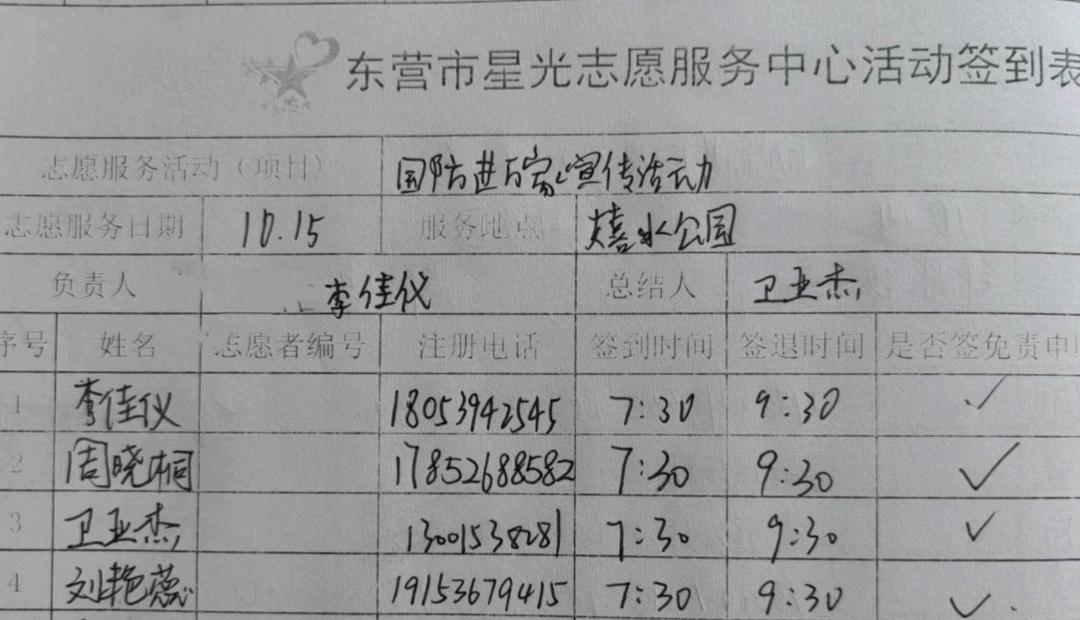 东营市星光志愿服务中心活动签到表
志愿服务活动（项目） 国防进万家宣传活动
志愿服务日期 10.15 服务地点 熹水公园
负责人 李佳仪 总结人 卫亚杰
序号 姓名 志愿者编号 注册电话 签到时间 签退时间 是否签免责申明
1 李佳仪 18053942545 7:30 9:30 ✓
2 周晓桐 17852688582 7:30 9:30 ✓
3 卫亚杰 13001538281 7:30 9:30 ✓
4 刘艳蕊 19153679415 7:30 9:30 ✓